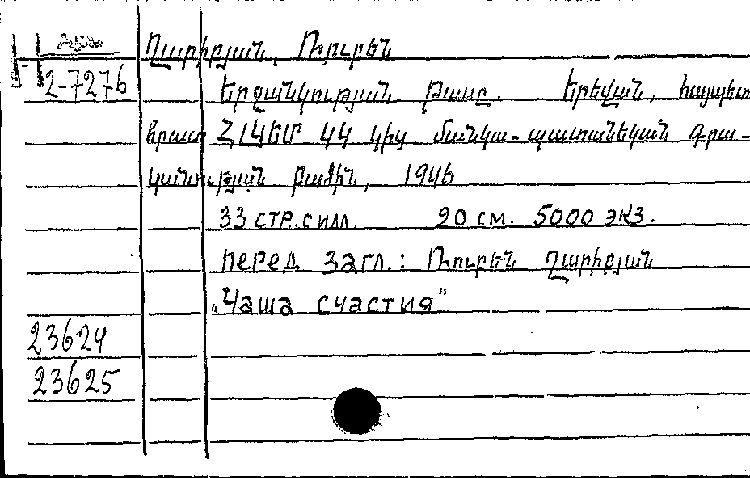 Ղարիբյան, Ռուբեն
2-7276
Երջանկության թասը. Երևան, հայպետ
հրատ ՀԼԿԵՄ ԿԿ կից մանկա-պատանեկան գրա-
կանության բաժին, 1946
33 стр. с илл. 20 см. 5000 экз.
Перед загл.: Ռուբեն Ղարիբյան
„Чаша счастия"
23624
23625